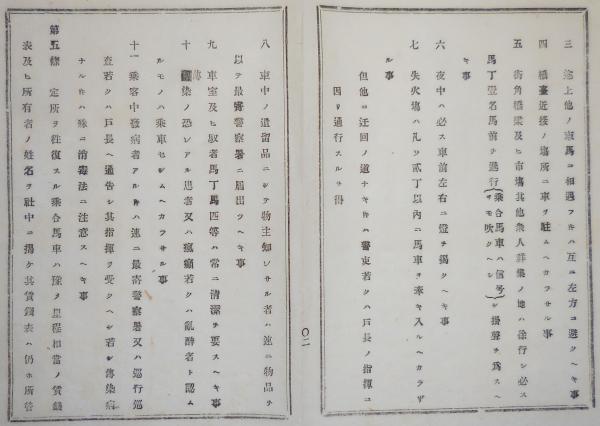 三 途上他ノ車馬ニ相遇フトキハ互ニ左方ニ避クヘキ事
四 橋臺近接ノ場所ニ車ヲ駐ムヘカラサル事
五 街角橋梁及ヒ市場其他衆人群集ノ地ハ徐行シ必ス
馬丁壹名馬前ヲ進行(乗合馬車ハ信号ヲモ吹クヘシ)シ掛聲ヲ爲スヘ
キ事
六 夜中ハ必ス車前左右ニ燈ヲ揭クヘキ事
七 失火塲ハ凡ソ貳丁以內ニ馬車ヲ牽キ入ルヘカラザ
ル事
但他ニ迂回ノ道ナキトキハ警吏若クハ戸長ノ指揮ニ
因リ通行スルヲ得
〇二
八 車中ノ遺留品ニシテ物主知レサル者ハ速ニ物品ヲ
以テ最寄警察署ニ届出ツヘキ事
九 車室及ヒ馭者馬丁馬匹等ハ常ニ清潔ヲ要スヘキ事
十 傳染ノ恐レアル患者又ハ瘋癲若クハ亂酔者ト認ム
ルモノハ乗車セシムヘカラサル事
十一 乗客中發病者アルトキハ速ニ最寄警察署又ハ巡行巡
査若クハ戸長ヘ通告シ其指揮ヲ受クヘシ若シ傳染病
ナルトキハ殊ニ消毒法ニ注意スヘキ事
第五條 定所ヲ往復スル乗合馬車ハ豫メ里程相當ノ賃錢
表及ヒ所有者ノ姓名ヲ社中ニ揭ケ其賃錢表ハ仍ホ所管